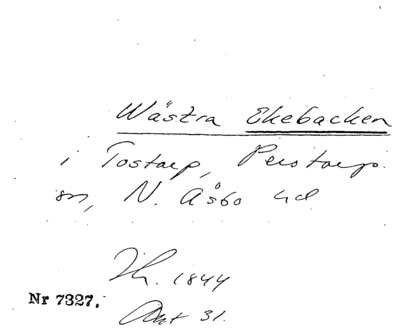 Wästra Ekebacken
i Tostarp, Perstorps
sn, N. Åsbo hd
Jh. 1844
Akt 31.
Nr 7327.